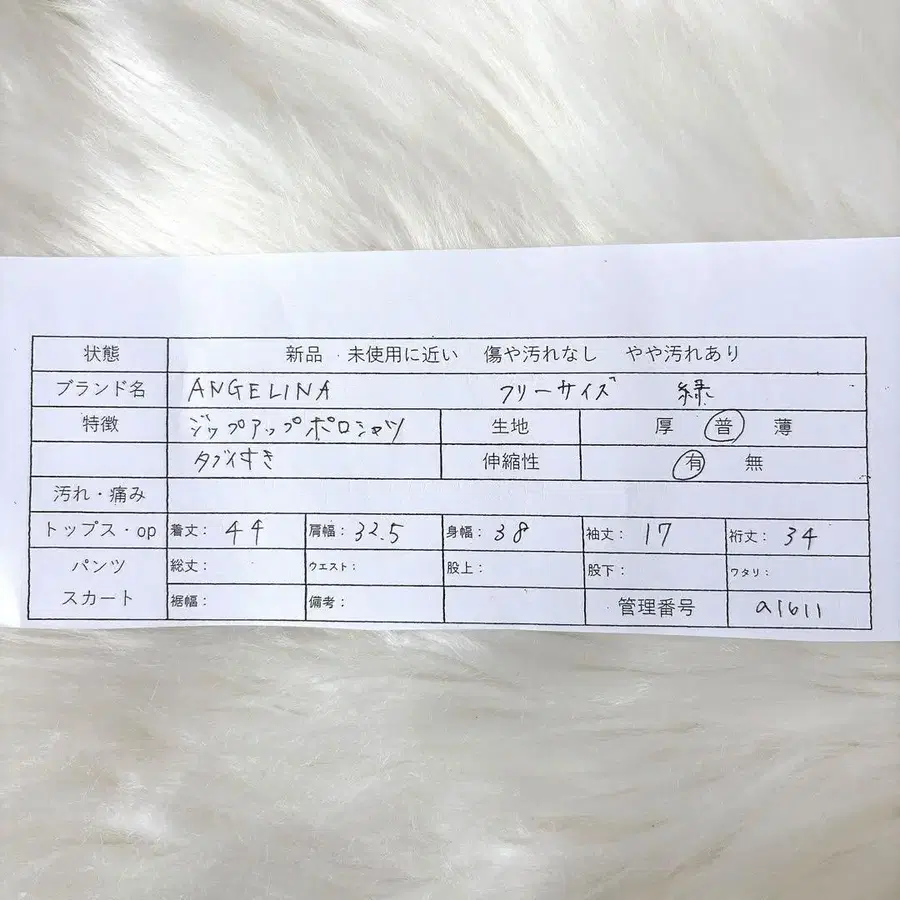 状態 新品 未使用に近い 傷や汚れなし やや汚れあり
ブランド名 ANGELINA フリーサイズ 緑
特徴 ジップアップポロシャツ 生地 厚 普 薄
タグ付き 伸縮性 有 無
汚れ・痛み
トップス・op 着丈： 44 肩幅： 32.5 身幅： 38 袖丈： 17 裄丈： 34
パンツ 総丈： ウエスト： 股上： 股下： ワタリ：
スカート 裾幅： 備考： 管理番号 a1611